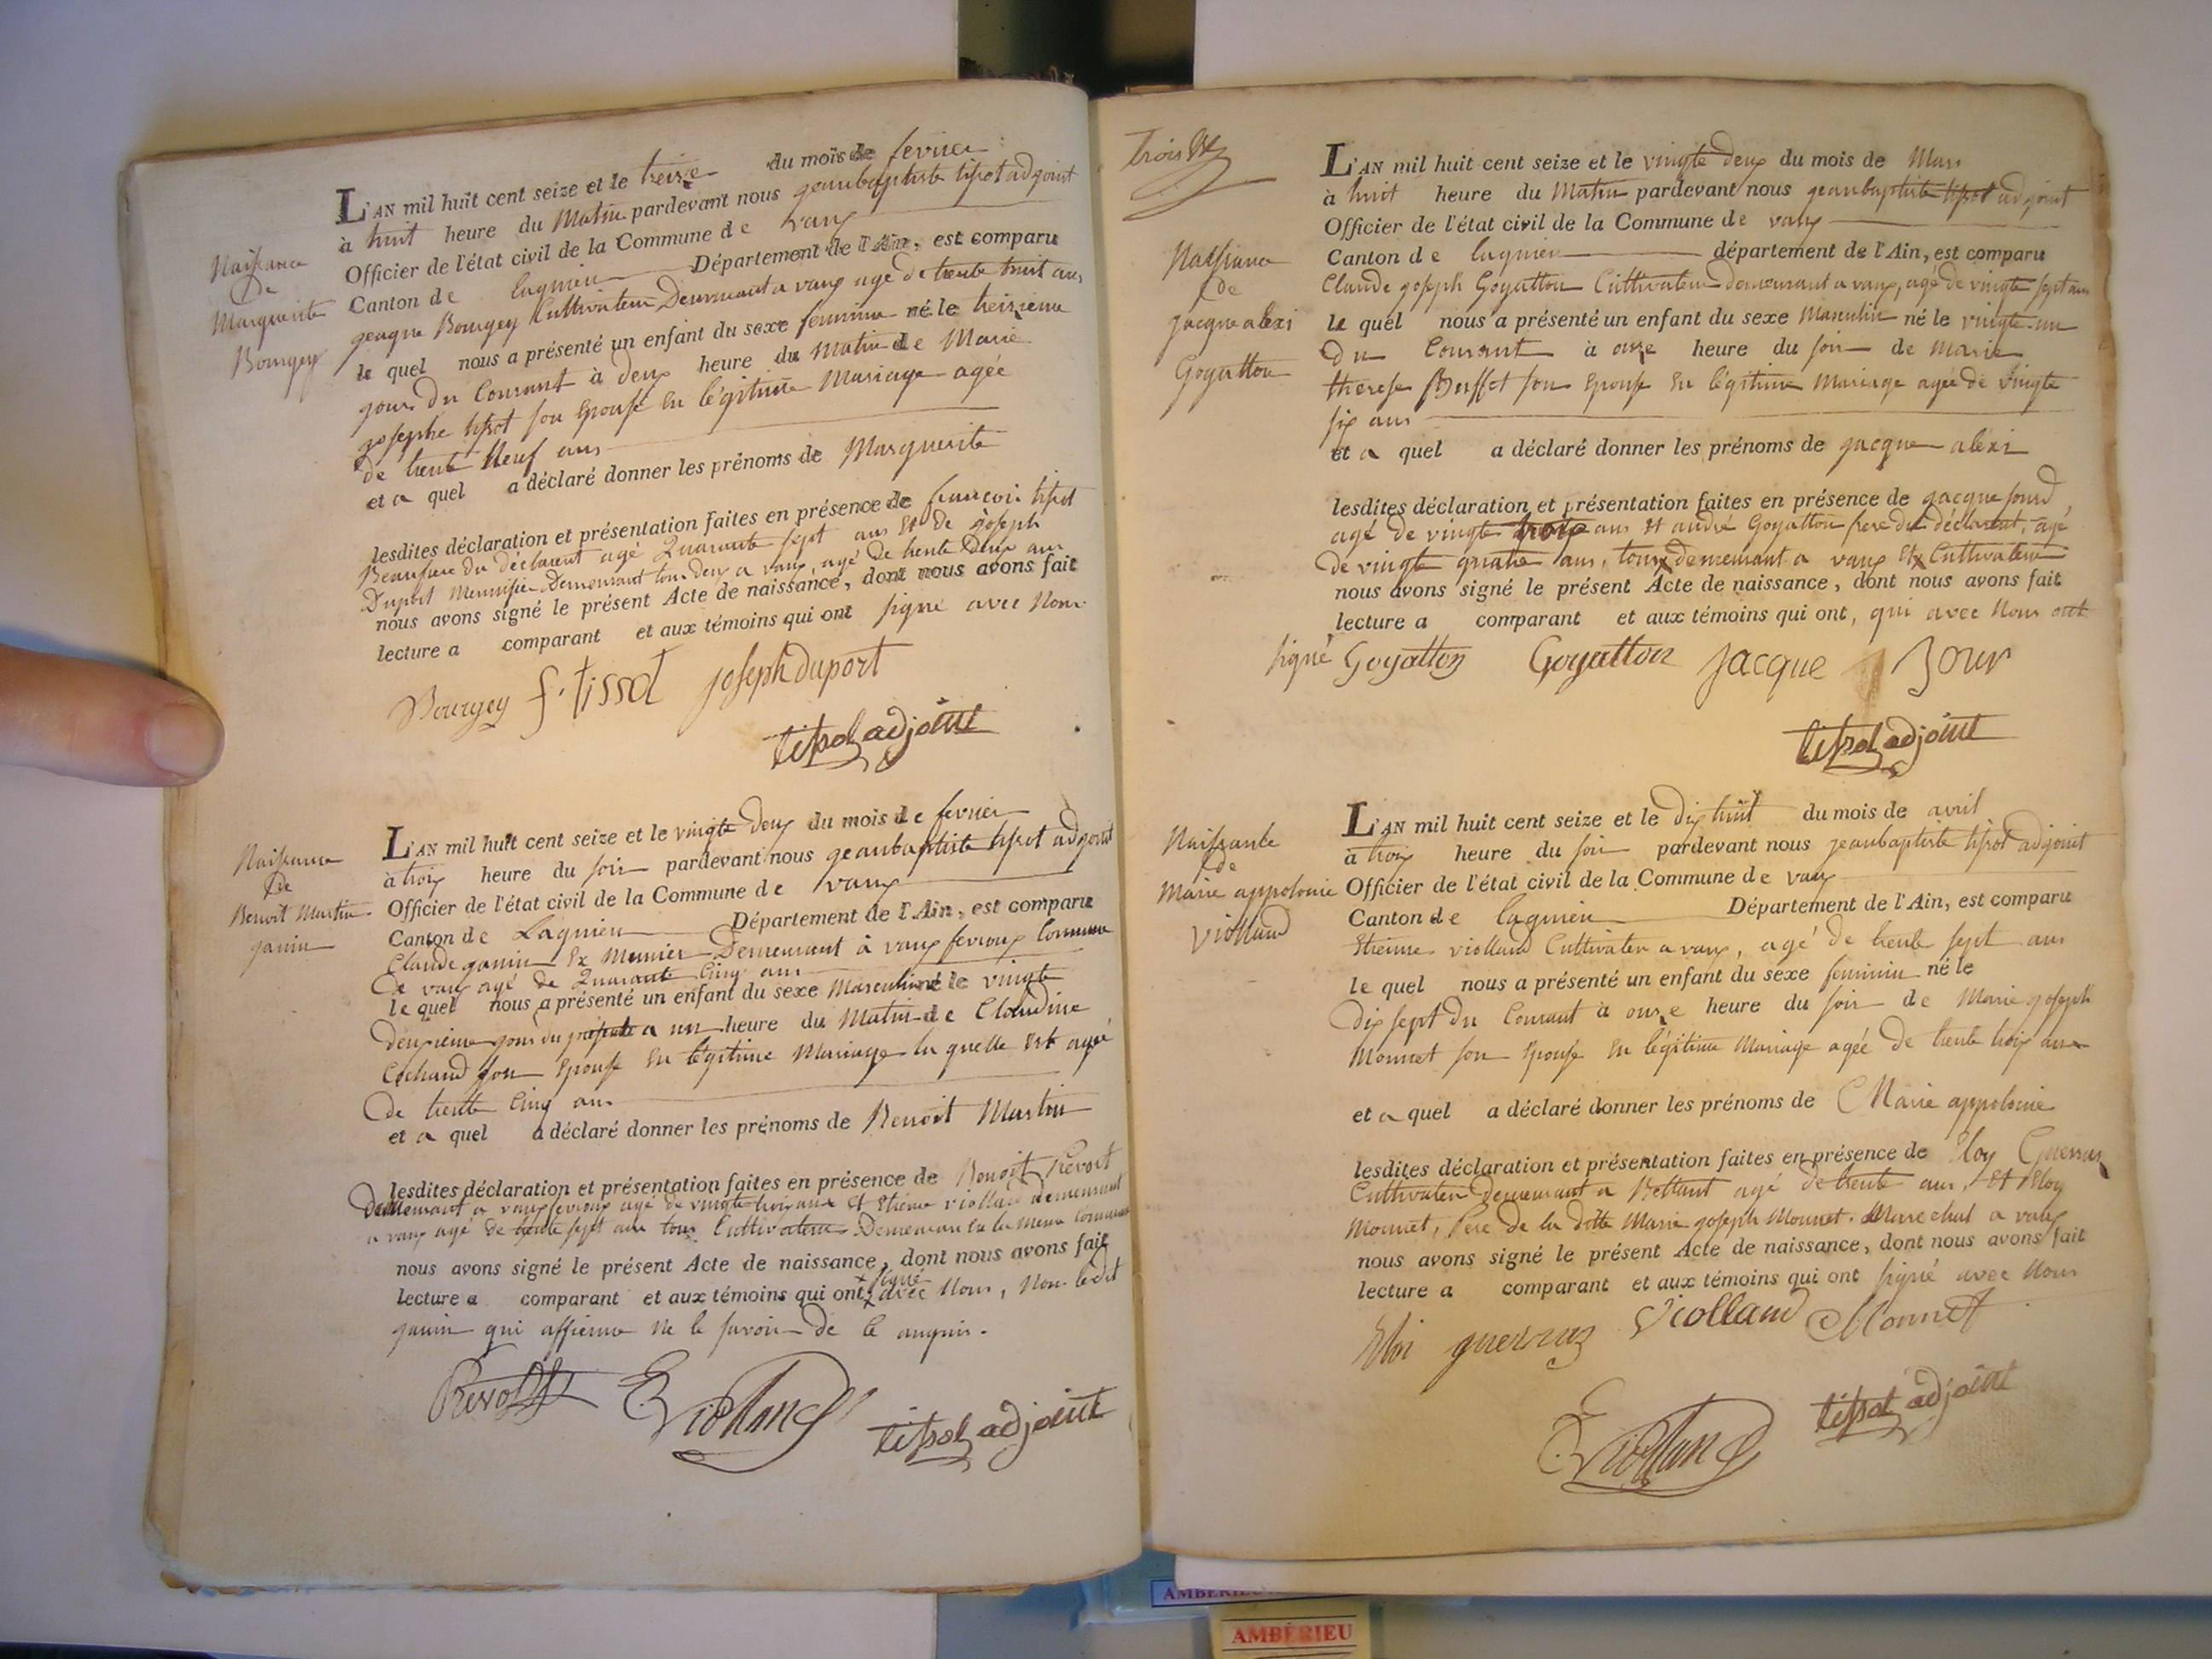 Naissance
de
Marguerite
Bourgey
L'AN mil huit cent seize et le treize du mois de fevrier
à huit heure du Matin pardevant nous jeanbaptiste tissot adjoint
Officier de l'état civil de la Commune de vaux
Canton de lagnieu Département de l'Ain, est comparu
Bourgey Cultivateur Demeurant a vaux agé de trente huit ans
le quel nous a présenté un enfant du sexe feminin né le treizieme
jour du Courant à deux heure du matin de Marie
josephe tissot son Epouse En légitime Mariage agée
de trente Neuf ans
et a quel a déclaré donner les prénoms de Marguerite
lesdites déclaration et présentation faites en présence de françois tissot
Beaufrere du déclarant agé Quarante sept ans Et de joseph
Duport Menuisier Demeurant tous deux a vaux, agé de trente Deux ans
nous avons signé le présent Acte de naissance, dont nous avons fait
lecture a comparant et aux témoins qui ont signé avec Nous
Bourgey f. tissot joseph duport
tissot adjoint
Naissance
De
Benoit Martin
janin
L'AN mil huit cent seize et le vingte deux du mois de fevrier
à trois heure du soir pardevant nous jeanbaptiste tissot adjoint
Officier de l'état civil de la Commune de vaux
Canton de Lagnieu Département de l'Ain, est comparu
Claude janin Ex Meunier Demeurant à vaux fevroux Commune
de vaux agé de Quarante Cinq ans
le quel nous a présenté un enfant du sexe Masculin né le vingte
deuxieme jour du a un heure du Matin de Claudine
Cochand son Epouse En légitime Mariage la quelle Est agée
De trente Cinq ans
et a quel a déclaré donner les prénoms de Benoit Martin
lesdites déclaration et présentation faites en présence de Benoit Revost
Demeurant a vaux fevroux agé de vingte trois ans Et Etiene violland demeurant
a vaux agé de trente sept ans tous Cultivateurs Demeuran En la meme Commune
nous avons signé le présent Acte de naissance, dont nous avons fait
lecture a comparant et aux témoins qui ont signé avec Nous, Non ledit
janin qui affirme ne le savoir de ce enquis.
Revost E. Violland tissot adjoint
trois
Naissance
de
jacque alexi
Goyatton
L'AN mil huit cent seize et le vingte deux du mois de Mars
à huit heure du Matin pardevant nous jeanbaptiste tissot adjoint
Officier de l'état civil de la Commune de vaux
Canton de lagnieu département de l'Ain, est comparu
Claude joseph Goyatton Cultivateur demeurant a vaux, agé de vingte sept ans
le quel nous a présenté un enfant du sexe Masculin né le vingte un
du Courant à onze heure du soir de Marie
therese Buffet son Epouse En légitime Mariage agée de vingte
six ans
et a quel a déclaré donner les prénoms de jacque alexi
lesdites déclaration et présentation faites en présence de jacque
agé de vingte trois ans Et andré Goyatton frere du déclarant, agé
de vingte quatre ans, tous demeurant a vaux Et Cultivateur
nous avons signé le présent Acte de naissance, dont nous avons fait
lecture a comparant et aux témoins qui ont, qui avec Nous ont
signé Goyatton Goyatton jacque
tissot adjoint
Naissance
de
Marie appolonie
Violland
L'AN mil huit cent seize et le Dix huit du mois de avril
à trois heure du soir pardevant nous jeanbaptiste tissot adjoint
Officier de l'état civil de la Commune de vaux
Canton de lagnieu Département de l'Ain, est comparu
Etienne violland Cultivateur a vaux, agé de trente sept ans
le quel nous a présenté un enfant du sexe feminin né le
Dix sept du Courant à onze heure du soir de Marie joseph
Monnet son Epouse En légitime Mariage agée de trente trois ans
et a quel a déclaré donner les prénoms de Marie appolonie
lesdites déclaration et présentation faites en présence de Eloy Guerraz
Cultivateur Demeurant a Bettant agé de trente ans, Et Eloy
Monnet, Pere de la ditte Marie joseph Monnet, Marechal a vaux
nous avons signé le présent Acte de naissance, dont nous avons fait
lecture a comparant et aux témoins qui ont signé avec Nous
Eloi guerraz Violland Monnet
E. Violland tissot adjoint
AMBÉRIEU
AMBÉRIEU